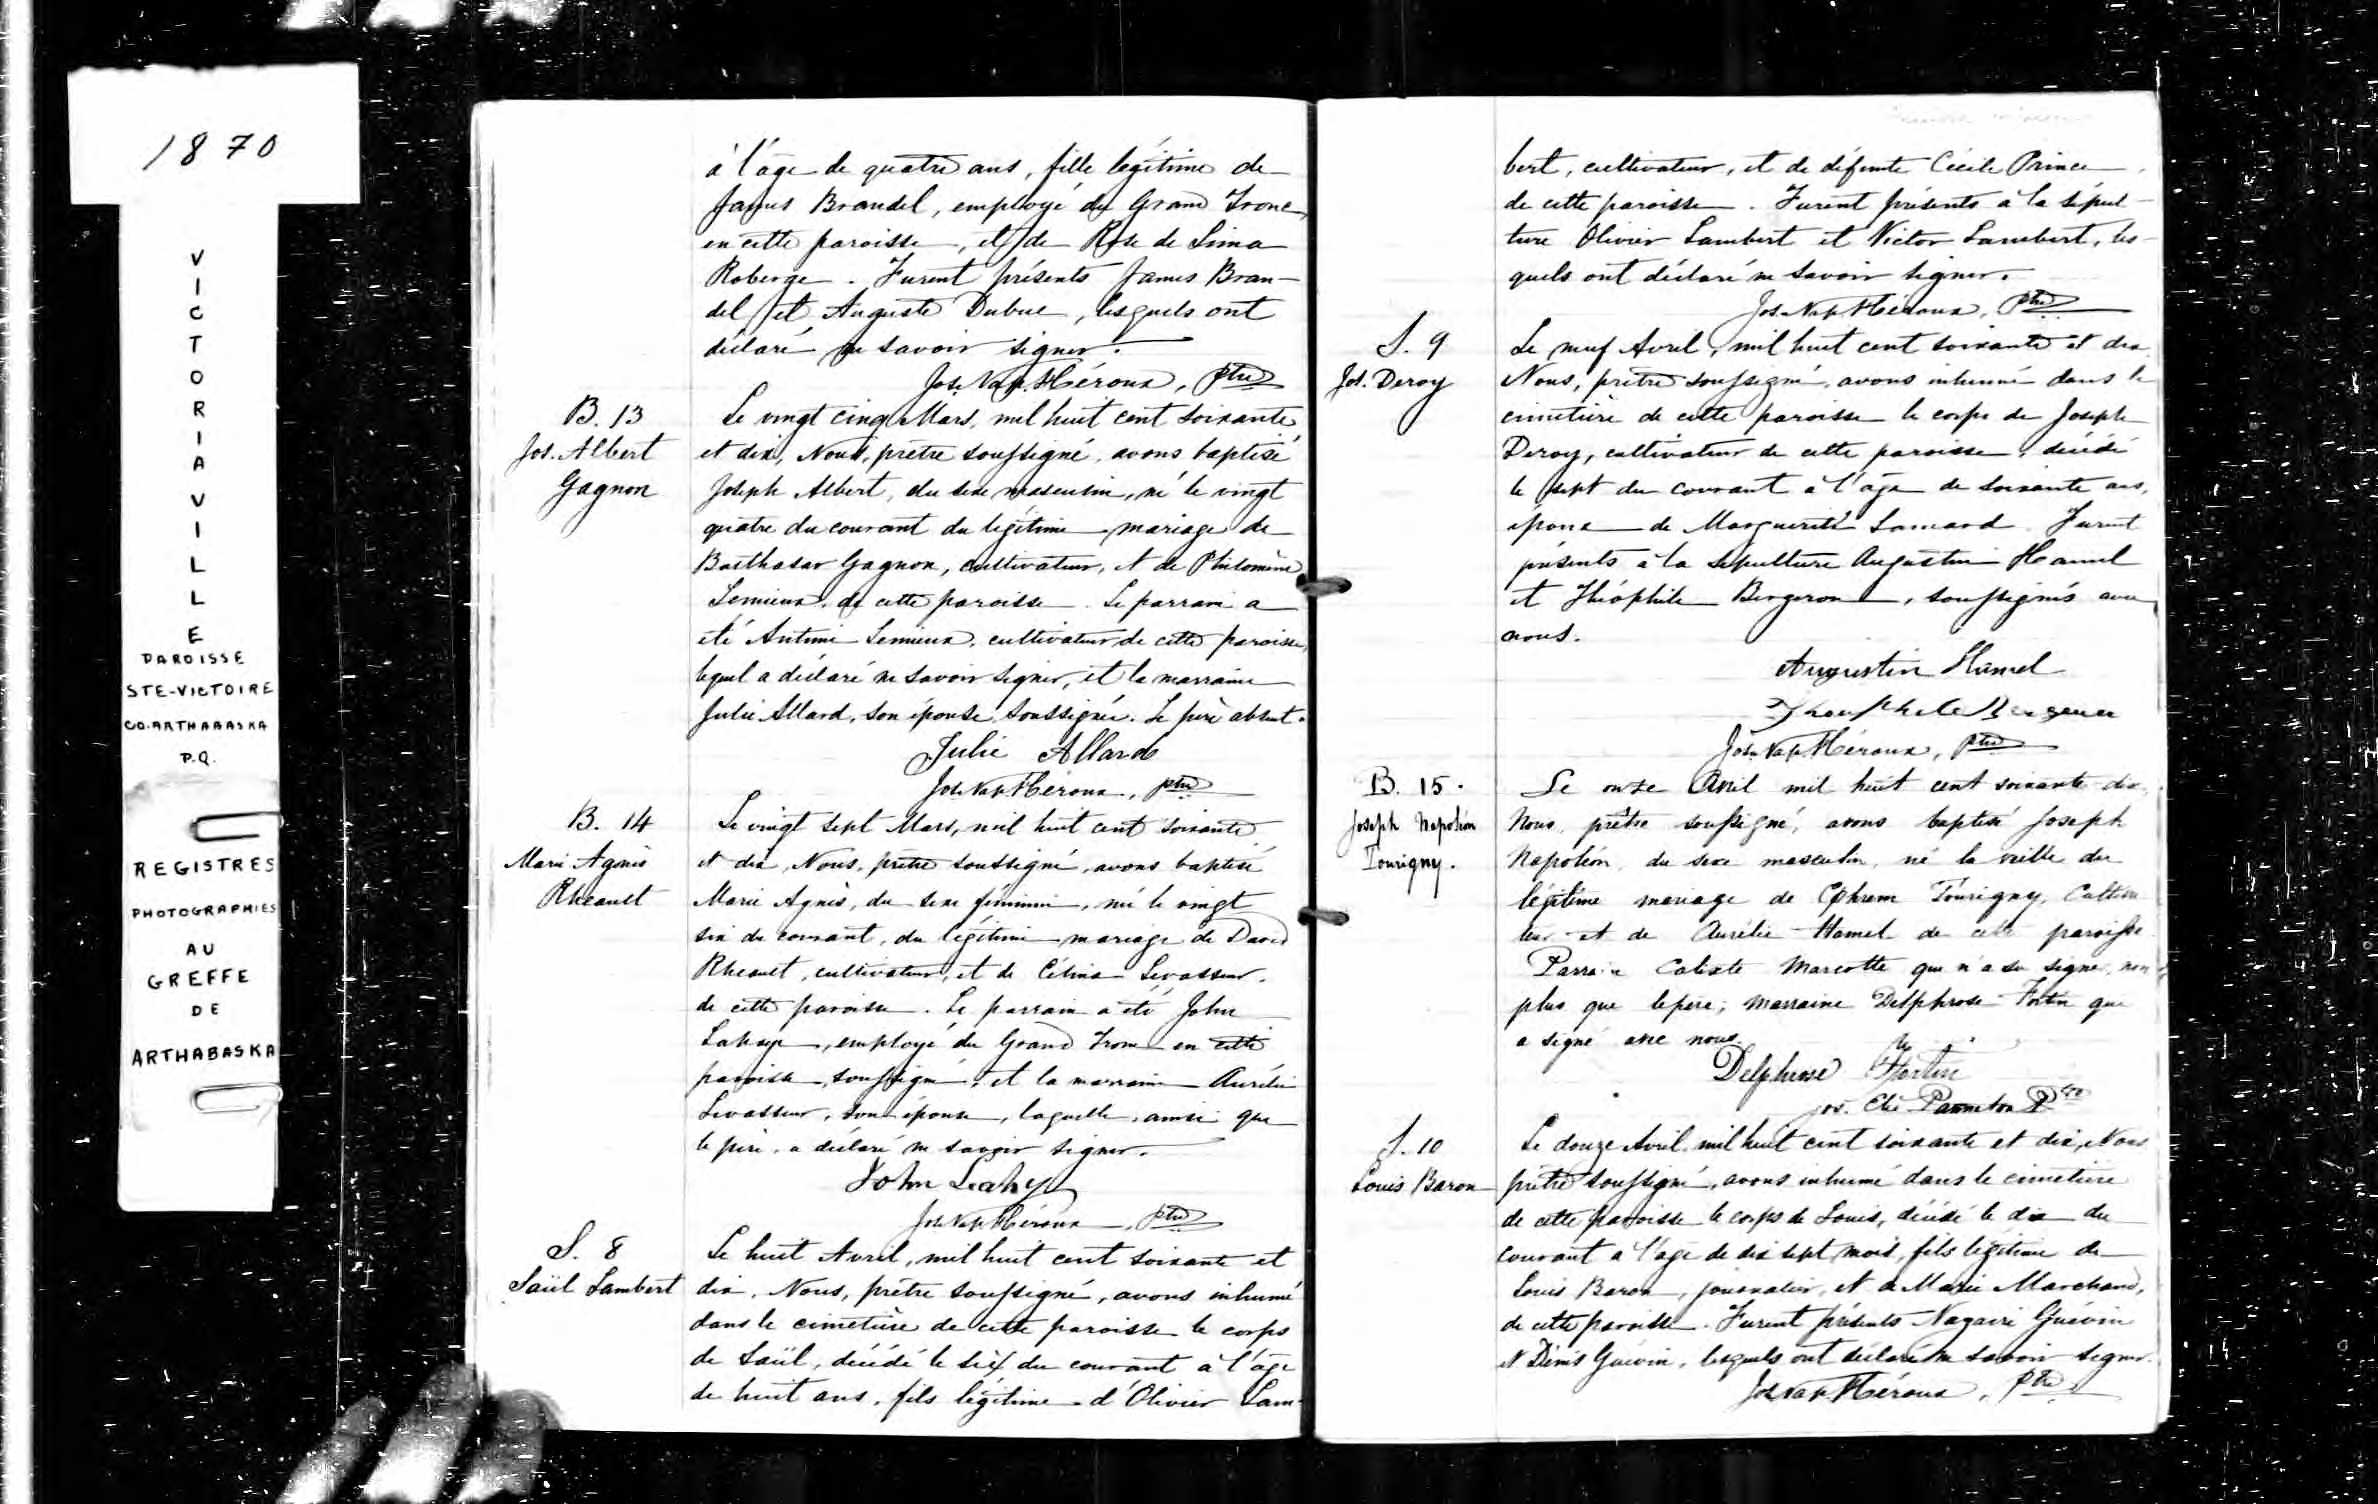 1870
VICTORIAVILLE
PAROISSE
STE-VICTOIRE
CO. ARTHABASKA
P.Q.
REGISTRES
PHOTOGRAPHIES
AU
GREFFE
DE
ARTHABASKA
à l'âge de quatre ans, fille légitime de
James Brandel, employé du Grand Tronc
en cette paroisse, et de Rose de Lima
Roberge. Furent présents James Bran-
del et Auguste Dubuc, lesquels ont
déclaré ne savoir signer.
Jos. Nap. Héroux, Ptre
B. 13
Jos. Albert
Gagnon
Le vingt cinq Mars, mil huit cent soixante
et dix, Nous, prêtre soussigné, avons baptisé
Joseph Albert, du sexe masculin, né le vingt
quatre du courant du légitime mariage de
Balthasar Gagnon, cultivateur, et de Philomène
Lemieux, de cette paroisse. Le parrain a
été Antime Lemieux, cultivateur de cette paroisse,
lequel a déclaré ne savoir signer, et la marraine
Julie Allard, son épouse, soussignée. Le père absent.
Julie Allard
Jos. Nap. Héroux, ptre
B. 14
Marie Agnès
Rheault
Le vingt sept Mars, mil huit cent soixante
et dix, Nous, prêtre soussigné, avons baptisé
Marie Agnès, du sexe féminin, née le vingt
six du courant, du légitime mariage de David
Rheault, cultivateur, et de Célina Levasseur,
de cette paroisse. Le parrain a été John
employé du Grand Tronc en cette
paroisse, soussigné, et la marraine Aurélie
Levasseur, son épouse, laquelle, ainsi que
le père, a déclaré ne savoir signer.
John Leahy
Jos. Nap. Héroux, Ptre
S. 8
Saül Lambert
Le huit Avril, mil huit cent soixante et
dix, Nous, prêtre soussigné, avons inhumé
dans le cimetière de cette paroisse le corps
de Saül, décédé le six du courant à l'âge
de huit ans, fils légitime d'Olivier Lam-
bert, cultivateur, et de défunte Cécile Prince
de cette paroisse. Furent présents à la sépul-
ture Olivier Lambert et Victor Lambert, les-
quels ont déclaré ne savoir signer.
Jos. Nap. Héroux, Ptre
S. 9
Jos. Deroy
Le neuf Avril, mil huit cent soixante et dix,
Nous, prêtre soussigné, avons inhumé dans le
cimetière de cette paroisse le corps de Joseph
Deroy, cultivateur de cette paroisse, décédé
le sept du courant à l'âge de soixante ans,
époux de Marguerite Samard. Furent
présents à la sépulture Augustin Hamel
et Théophile Bergeron, soussignés avec
nous.
Augustin Hamel
Jos. Nap. Héroux, Ptre
B. 15.
Joseph Napoléon
Tourigny.
Le onze Avril mil huit cent soixante-dix,
Nous, prêtre soussigné, avons baptisé Joseph
Napoléon, du sexe masculin, né la veille du
légitime mariage de Ephrem Tourigny, Cultiva-
teur et de Aurélie Hamel de cette paroisse
Parrain Calixte Marcotte qui n'a su signer, non
plus que le père; marraine Delphrose Fortin qui
a signé avec nous.
Delphrose Fortin
Jos. Elie Panneton Ptre
S. 10
Louis Baron
Le douze Avril mil huit cent soixante et dix, Nous
prêtre soussigné, avons inhumé dans le cimetière
de cette paroisse le corps de Louis, décédé le dix du
courant à l'âge de dix sept mois, fils légitime de
Louis Baron, journalier, et de Marie Marchand,
de cette paroisse. Furent présents Nazaire Guévin
et Denis Guévin, lesquels ont déclaré ne savoir signer.
Jos. Nap. Héroux, Ptre.